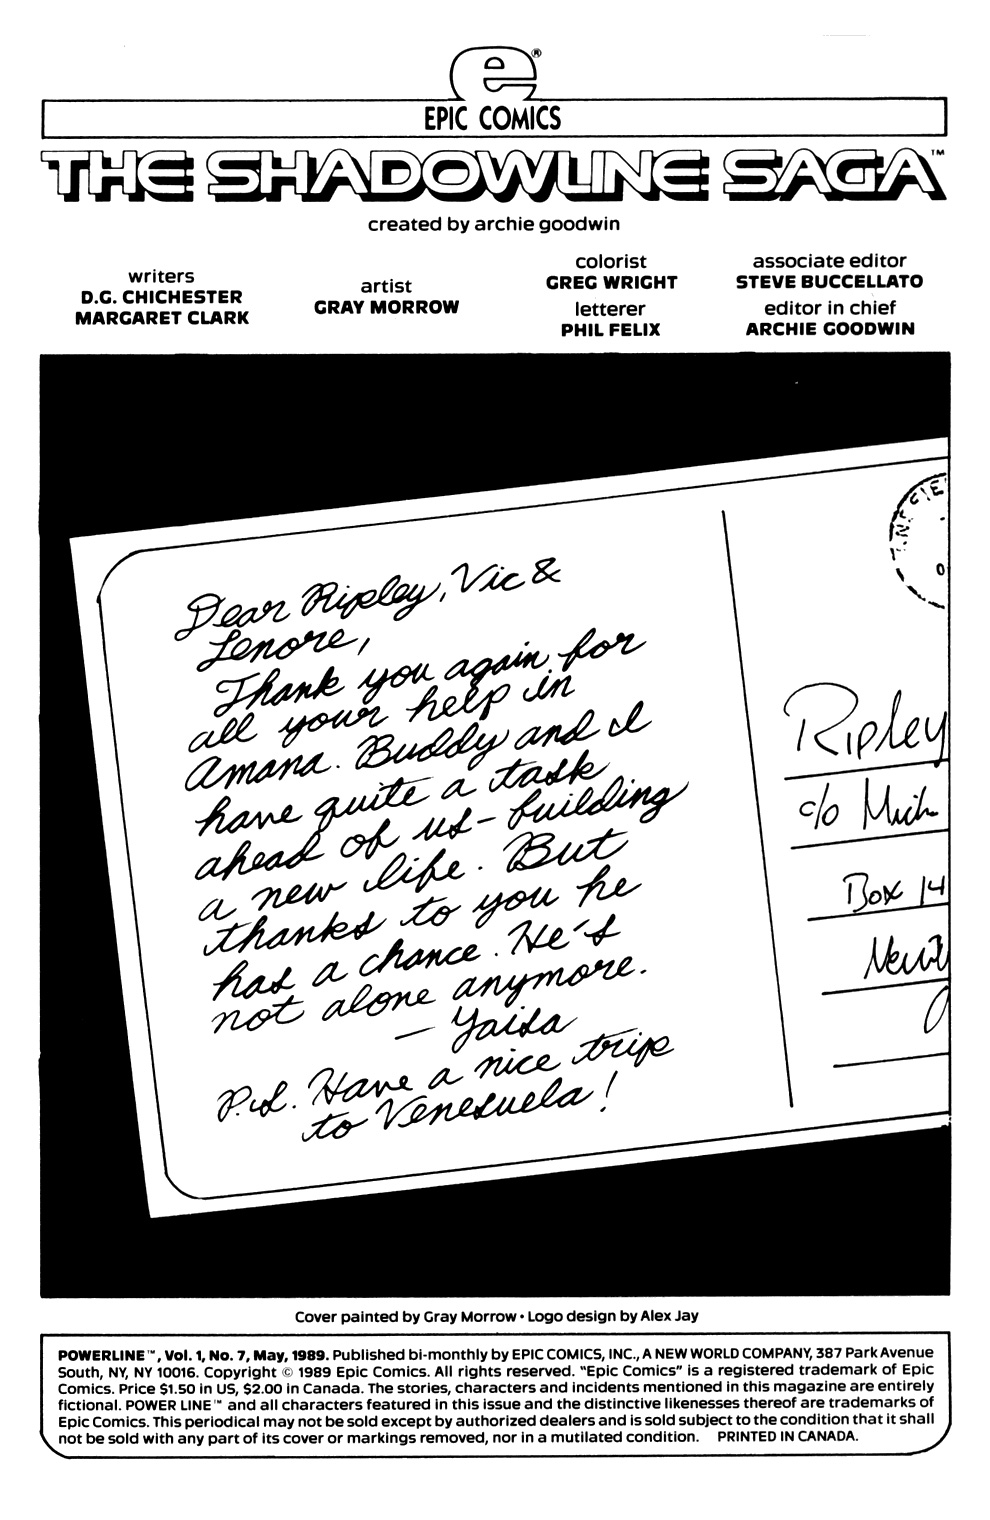 e®
EPIC COMICS
THE SHADOWLINE SAGA™
created by archie goodwin
writers
D.G. CHICHESTER
MARGARET CLARK
artist
GRAY MORROW
colorist
GREG WRIGHT
letterer
PHIL FELIX
associate editor
STEVE BUCCELLATO
editor in chief
ARCHIE GOODWIN
Dear Ripley, Vic &
Lenore,
Thank you again for
all your help in
Amana. Buddy and I
have quite a task
ahead of us - building
a new life. But
thanks to you he
has a chance. He's
not alone anymore.
— Yaisa
P.S. Have a nice trip
to Venesuela!
Ripley
c/o Mich
Box 14
Cover painted by Gray Morrow • Logo design by Alex Jay
POWERLINE™, Vol. 1, No. 7, May, 1989. Published bi-monthly by EPIC COMICS, INC., A NEW WORLD COMPANY, 387 Park Avenue
South, NY, NY 10016. Copyright © 1989 Epic Comics. All rights reserved. "Epic Comics" is a registered trademark of Epic
Comics. Price $1.50 in US, $2.00 in Canada. The stories, characters and incidents mentioned in this magazine are entirely
fictional. POWER LINE™ and all characters featured in this issue and the distinctive likenesses thereof are trademarks of
Epic Comics. This periodical may not be sold except by authorized dealers and is sold subject to the condition that it shall
not be sold with any part of its cover or markings removed, nor in a mutilated condition. PRINTED IN CANADA.